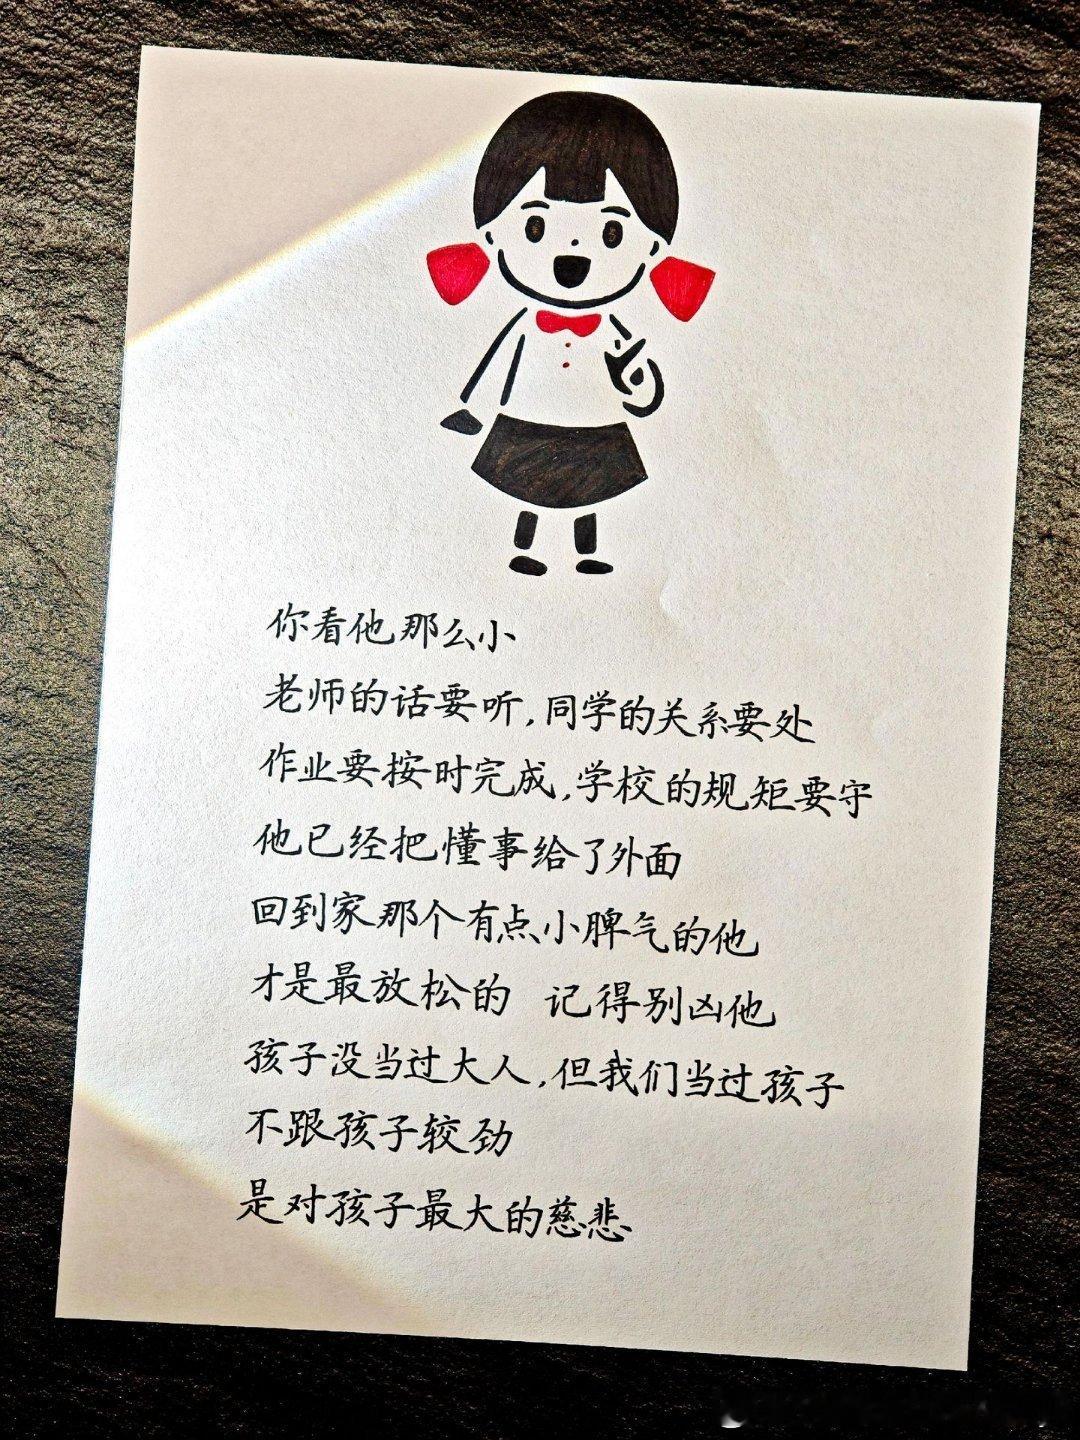 你看他那么小
老师的话要听,同学的关系要处
作业要按时完成,学校的规矩要守
他已经把懂事给了外面
回到家那个有点小脾气的他
才是最放松的 记得别凶他
孩子没当过大人,但我们当过孩子
不跟孩子较劲
是对孩子最大的慈悲